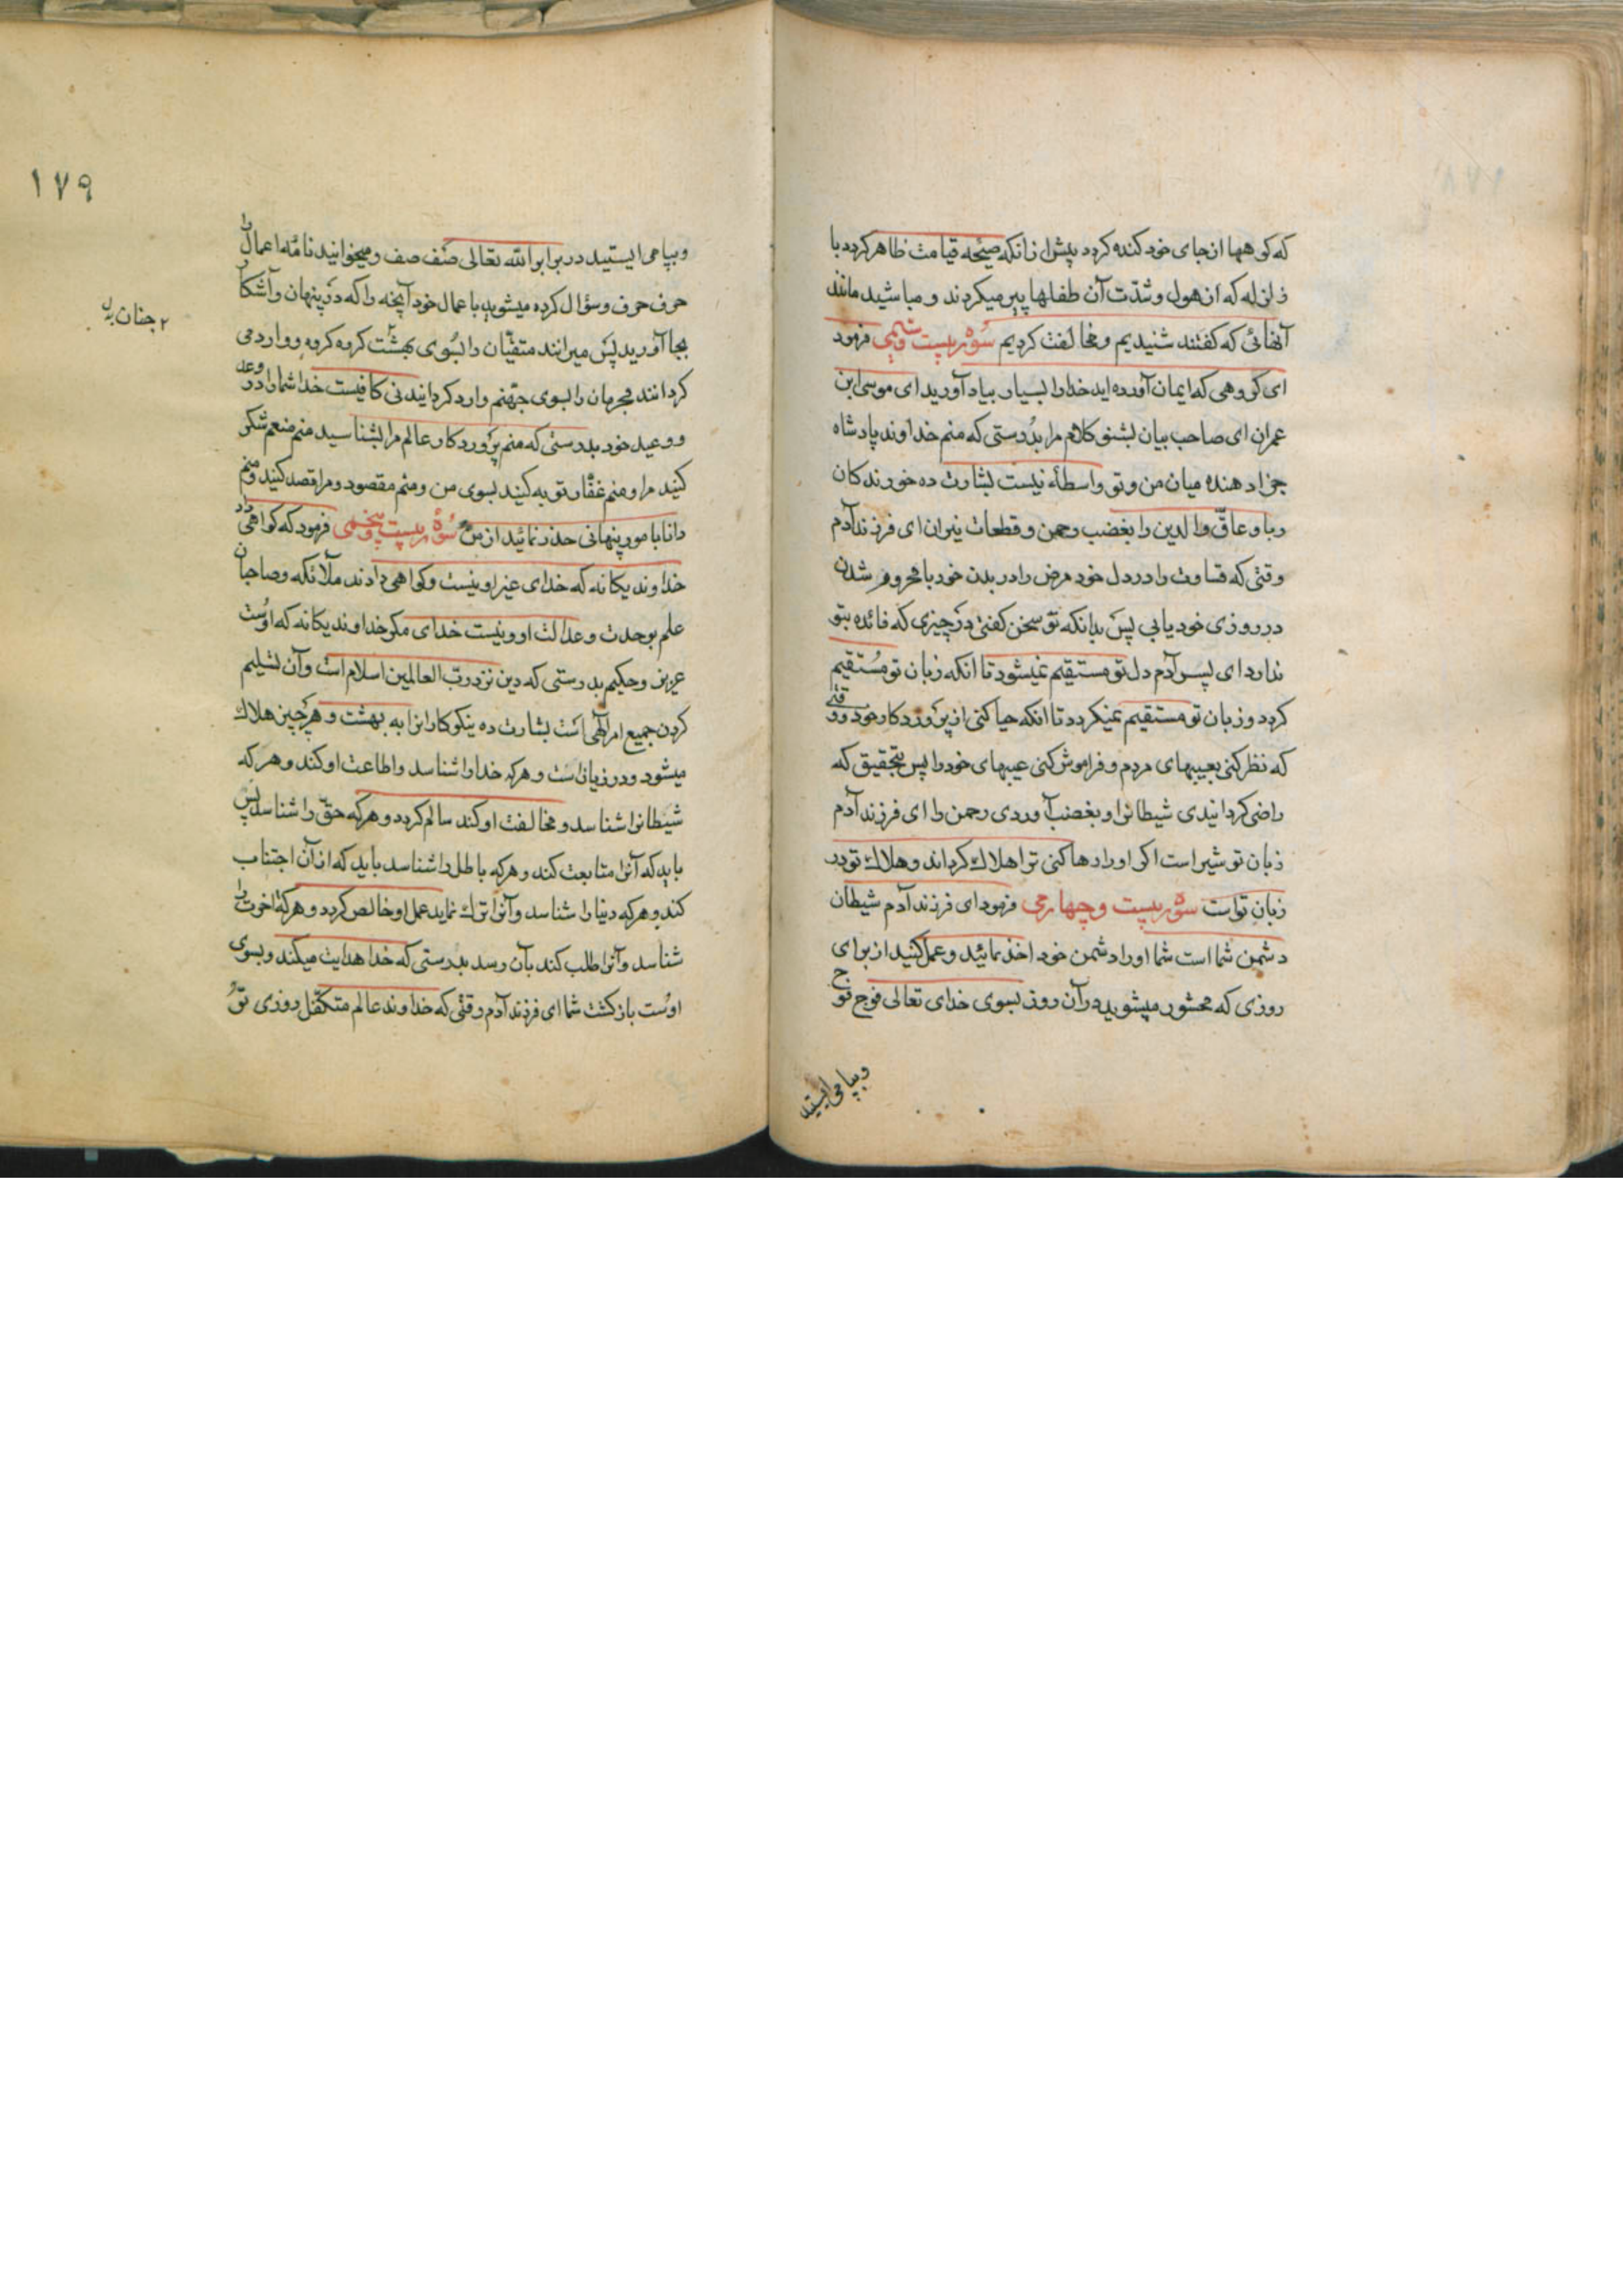 که کوهها از جای خود کنده کردد پیش از انکه صیحه قیامت ظاهر کردد با
زلزله که از هول و شدّت آن طفلها پیر میکردند و مباشید مانند
آنهائی که کفتند شنیدیم و مخالفت کردیم سُوره بیست و سیمی فرمود
ای کروهی که ایمان آورده اید خدا را بسیار بیاد آورید ای موسی ابن
عمران ای صاحب بیان بشنو کلام مرا بدُرستی که منم خداوند پادشاه
جزا دهنده میان من و تو واسطه نیست بشارت ده خورندکان
ربا و عاقّ والدین را بغضب رحمن و قطعات نیران ای فرزند آدم
وقتی که قساوت را در دل خود و مرض را در بدن خود با محروم شدن
در روزی خود یابی پس بدانکه تو سخن کفتی در چیزی که فائده بتو
ندارد ای پسر آدم دل تو مستقیم نمیشود تا انکه زبان تو مُستقیم
کردد و زبان تو مستقیم نمیکردد تا انکه حیا کنی از پروردکار خود و وقتی
که نظر کنی بعیبهای مردم و فراموش کنی عیبهای خود را پس بتحقیق که
راضی کردانیدی شیطانرا و بغضب آوردی رحمن را ای فرزند آدم
زبان تو شیر است اکر او را رها کنی ترا هلاک کرداند و هلاک تو در
زبان تو است سوره بیست و چهارمی فرمود ای فرزند آدم شیطان
دشمن شما است شما او را دشمن خود اخذ نمائید و عمل کنید از برای
روزی که محشور میشوید در آن روز بسوی خدای تعالی فوج فوج
و بپا می ایستید
١٧٩
و بپا می ایستید در برابر الله تعالی صف صف و میخوانید نامهٔ اعمال را
حرف حرف و سؤال کرده میشوید باعمال خود آنچه را که در پنهان و آشکار
بجا آورید پس میرانند متقیّان را بسُوی بهشت کروه کروه و وارد می
٢ جنان بدل
کردانند مجرمان را بسوی جهنّم وارد کردانیدنی کافیست خدا شما را در وعد
و وعید خود بدرستی که منم پروردکار عالم مرا بشناسید منم منعم شکر
کنید مرا و منم غفّار توبه کنید بسوی من و منم مقصود و مرا قصد کنید و منم
دانا بامور پنهانی حذر نمائید از من سُورهٔ بیست و پنجمی فرمود که کواهی داد
خداوند یکانه که خدای غیر او نیست و کواهی دادند ملائکه و صاحبان
علم بوحدت و عدالت او و نیست خدای مکر خداوند یکانه که اوست
عزیز و حکیم بدرستی که دین نزد ربّ العالمین اسلام است و آن تسلیم
کردن جمیع امر الهی است بشارت ده نیکوکارانرا به بهشت و هر چیز هلاک
میشود و در زیانست و هر که خدا را شناسد و اطاعت او کند و هر که
شیطانرا شناسد و مخالفت او کند سالم کردد و هر که حقّ را شناسد پس
باید که آنرا متابعت کند و هر که باطل را شناسد باید که از آن اجتناب
کند و هر که دنیا را شناسد و آنرا ترک نماید عمل او خالص کردد و هر که اخرت را
شناسد و آنرا طلب کند بآن رسد بدرستی که خدا هدایت میکند و بسوی
اوست بازکشت شما ای فرزند آدم وقتی که خداوند عالم متکفّل روزی تو